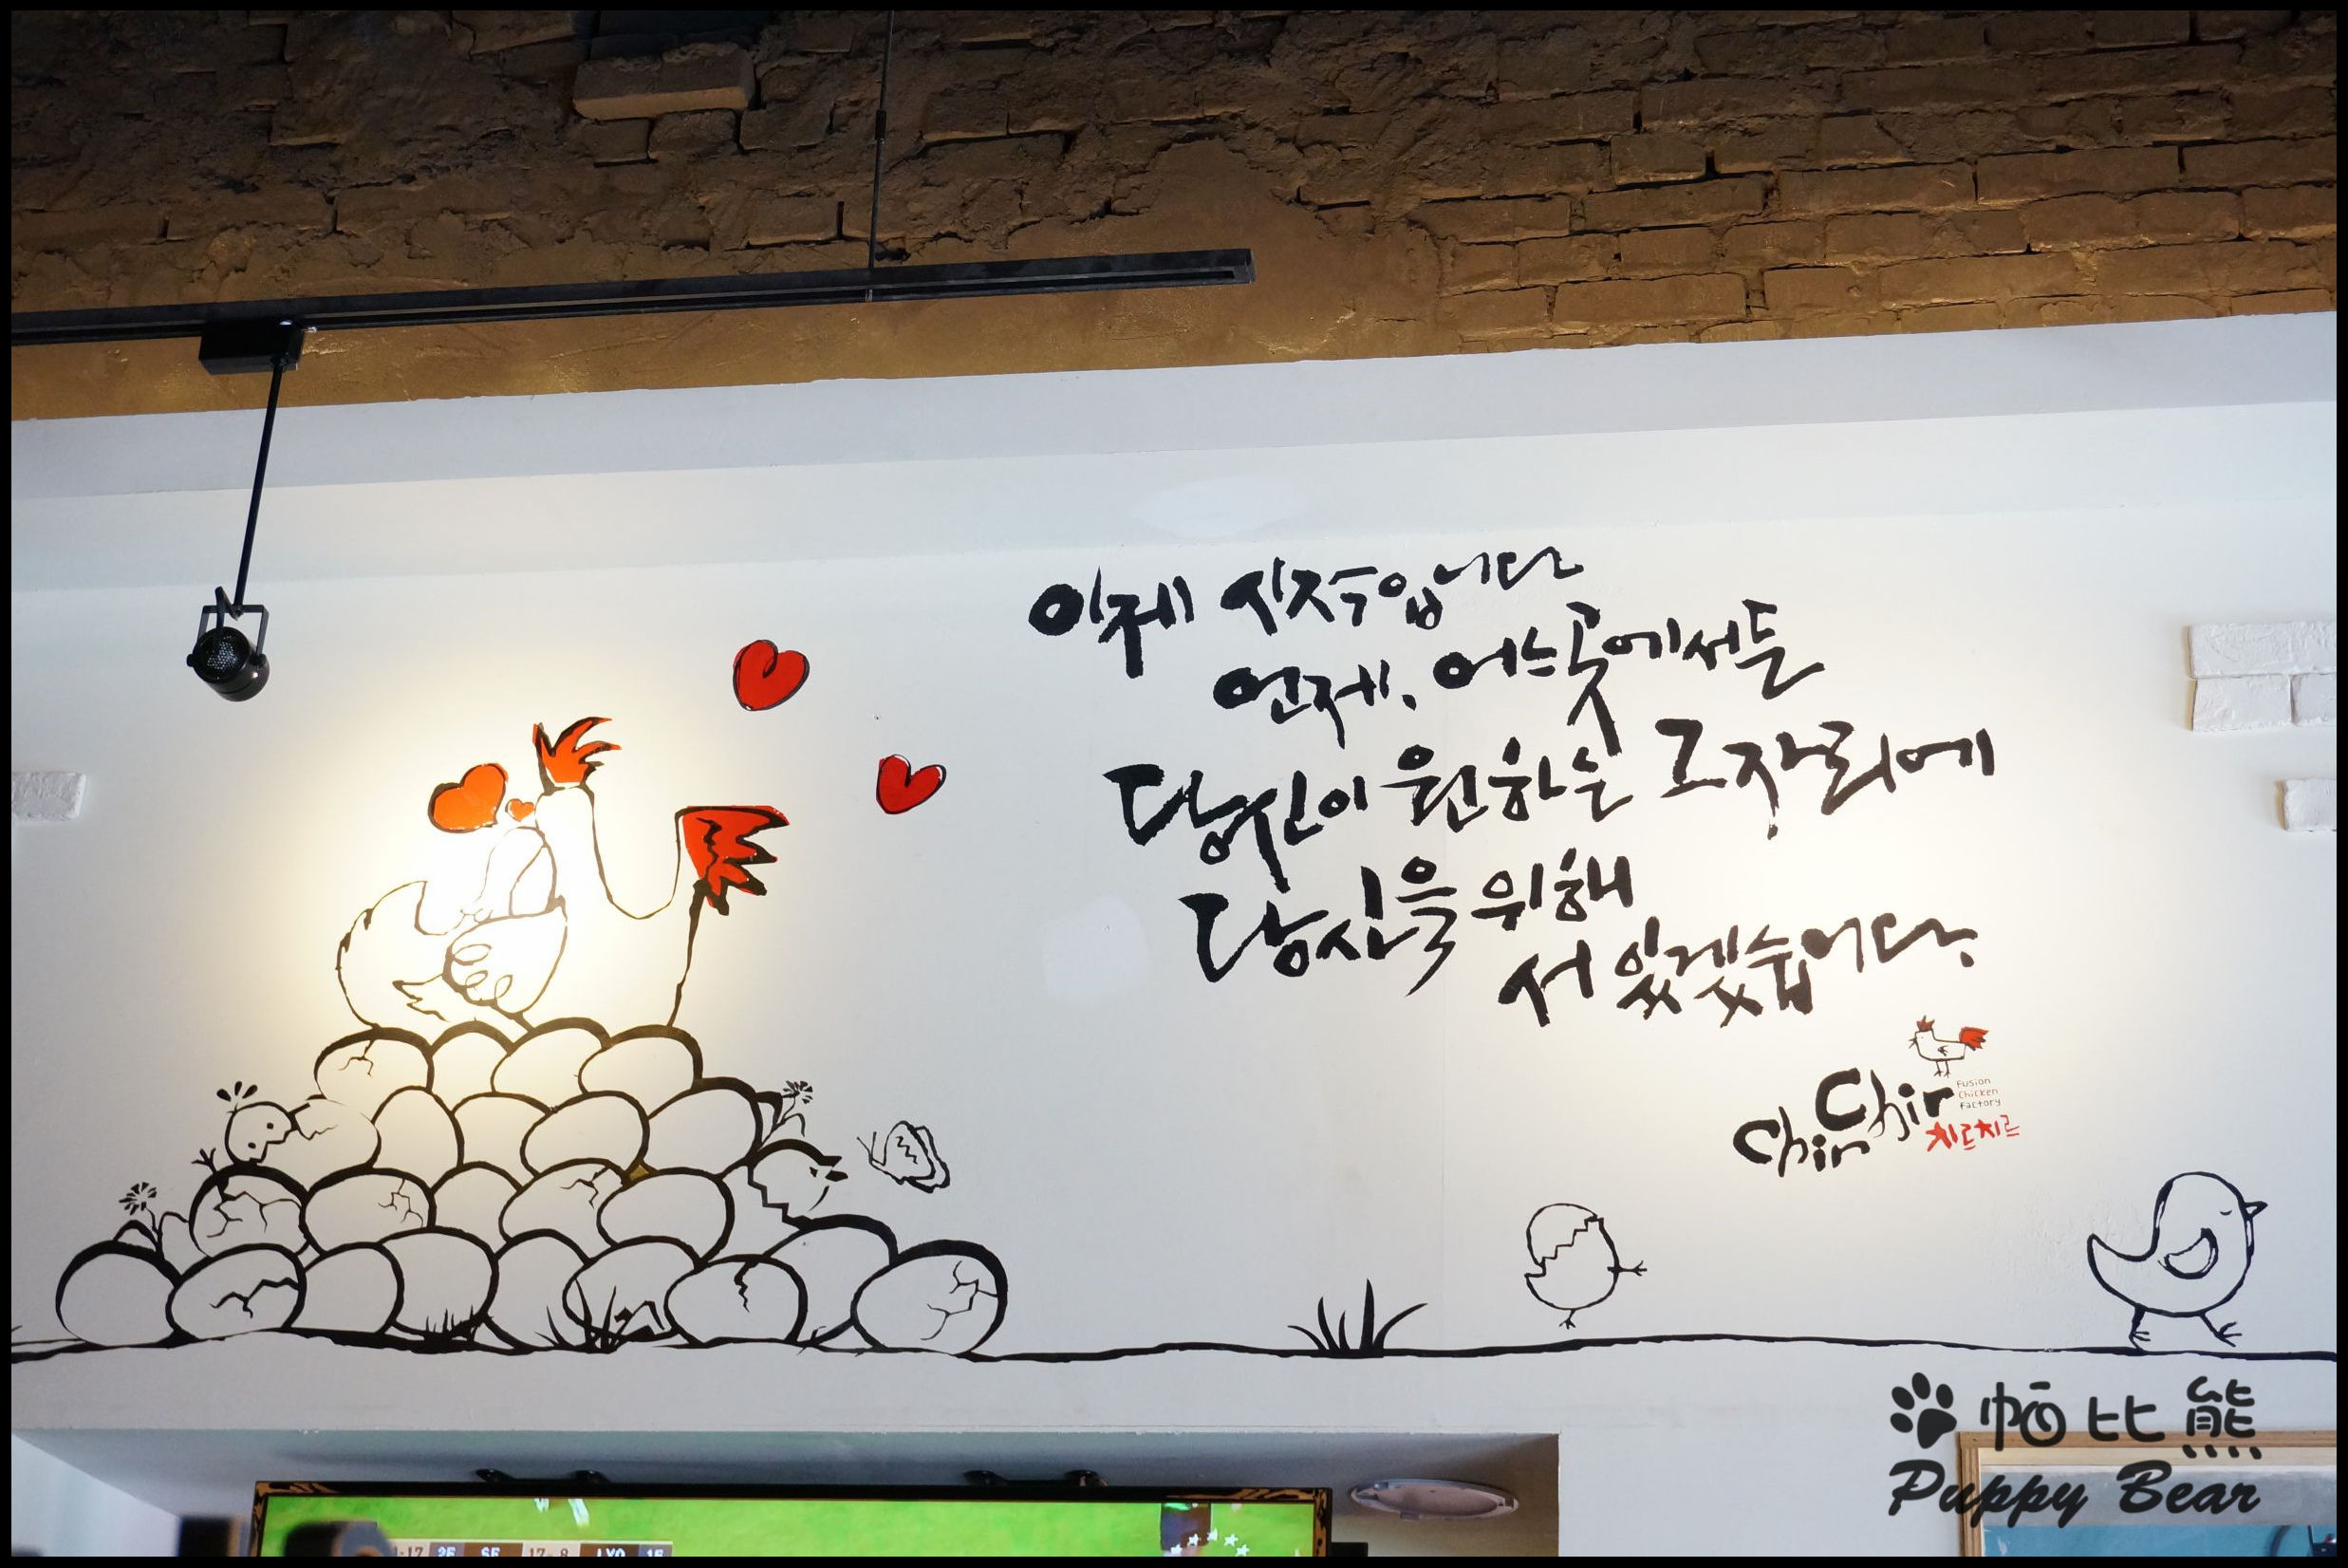 이제 시작입니다
언제, 어느곳에서든
당신이 원하는 그자리에
당신을 위해
서 있겠습니다.
Chir Chir
Fusion
Chicken
Factory
치르치르
帕比熊
Puppy Bear